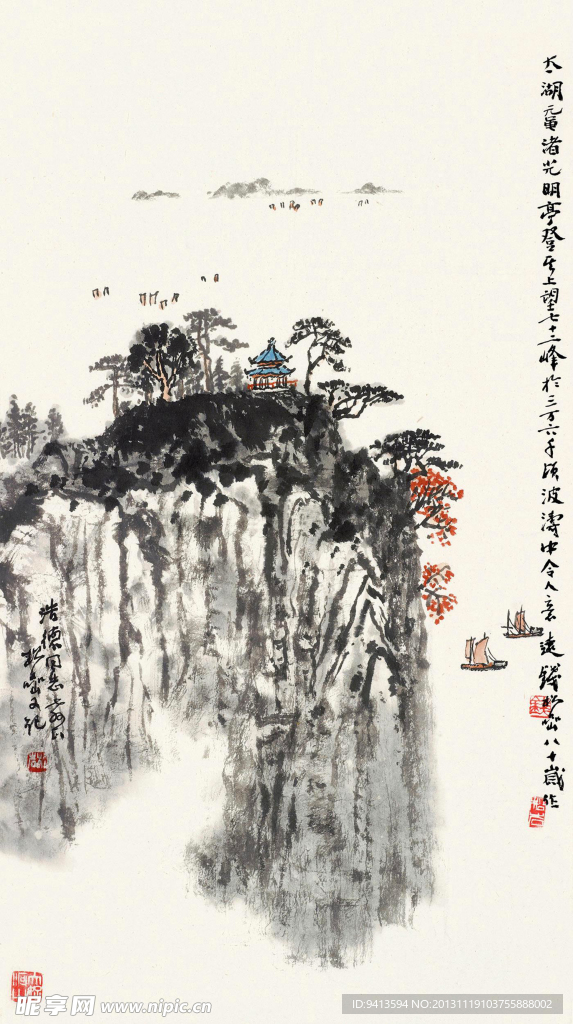 太湖黿渚光明亭登其上望七十二峰於三万六千顷波濤中令人意遠钱松喦八十歲作
浩德同志
松喦又记
昵享网 www.nipic.cn
ID:9413594 NO:20131119103755888002